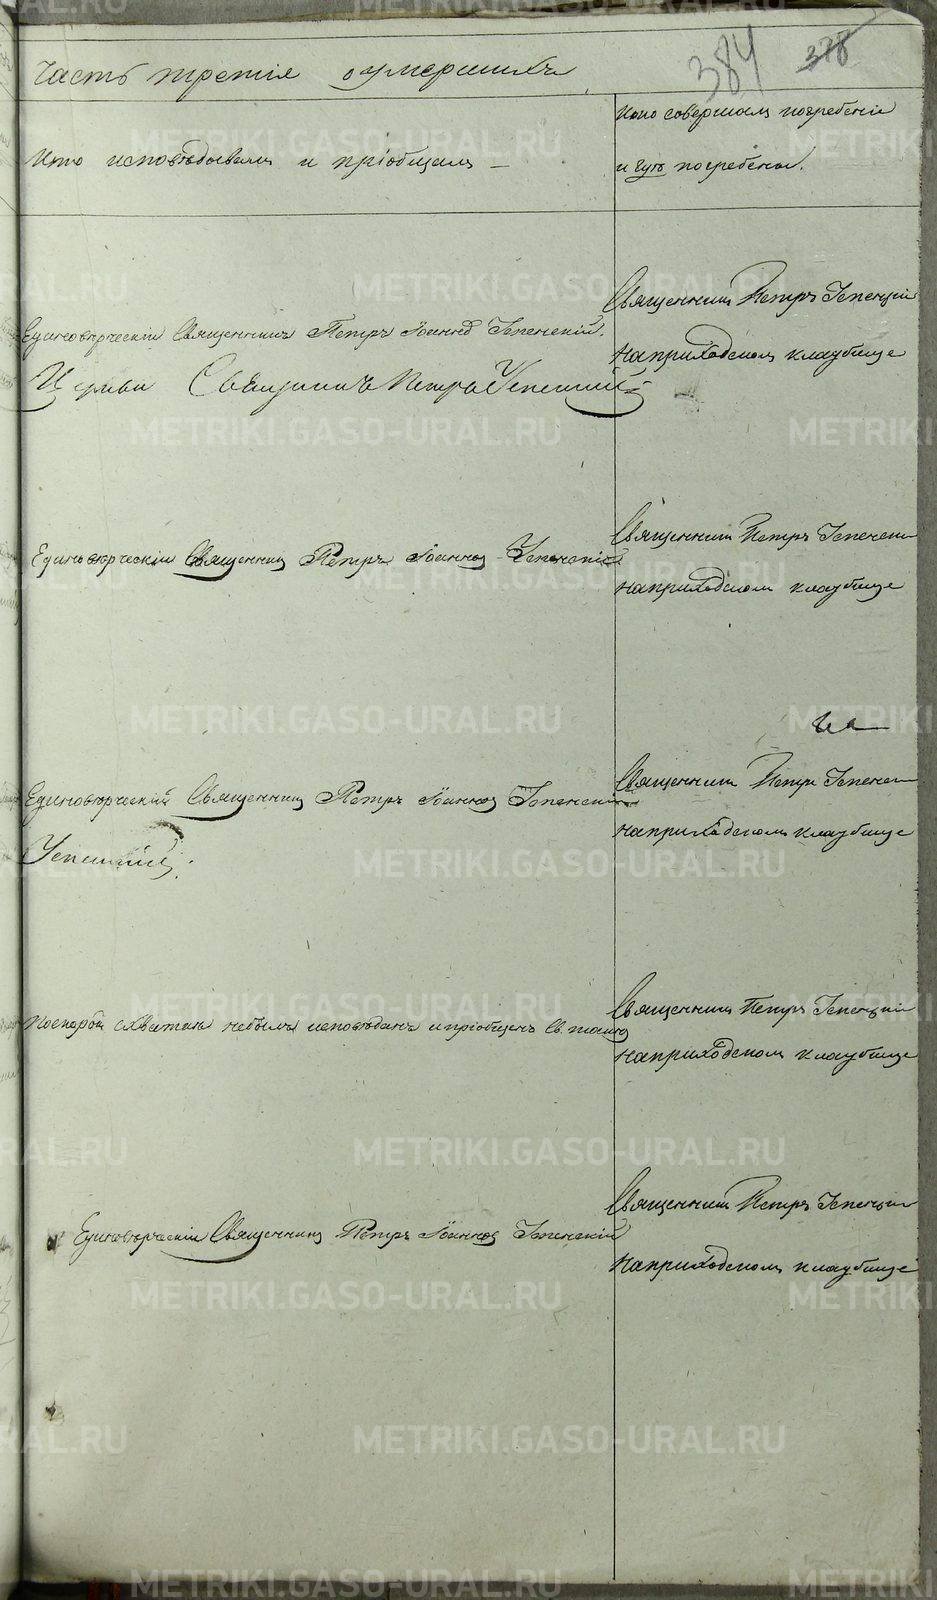 384 378
Часть третія о умершихъ
Кто исповѣдывалъ и пріобщалъ —
Кто совершалъ погребеніе
и гдѣ погребены.
Единовѣрческій Священникъ Петръ Іоанновъ Успенскій.
Церкви Священникъ Петръ Успенскій
Священникъ Петръ Успенскій
на приходскомъ кладбище
Единовѣрческій Священникъ Петръ Іоанновъ Успенскій
Священникъ Петръ Успенскій
на приходскомъ кладбище
Единовѣрческій Священникъ Петръ Іоанновъ Успенскій
Успенскій.
Священникъ Петръ Успенскій
на приходскомъ кладбище
не былъ исповѣданъ и пріобщенъ Св. таинъ
Священникъ Петръ Успенскій
на приходскомъ кладбище
Единовѣрческій Священникъ Петръ Іоанновъ Успенскій
Священникъ Петръ Успенскій
на приходскомъ кладбище
METRIKI.GASO-URAL.RU